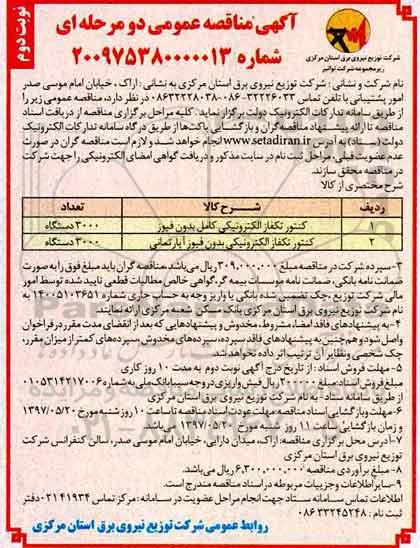 نوبت دوم
آگهی مناقصه عمومی دو مرحله ای
شماره ۲۰۰۹۷۵۳۸۰۰۰۰۰۱۳
شرکت توزیع نیروی برق استان مرکزی
زیرمجموعه شرکت توانیر
نام شرکت و نشانی : شرکت توزیع نیروی برق استان مرکزی به نشانی : اراک ، خیابان امام موسی صدر
امور پشتیبانی با تلفن تماس ۳۲۲۲۶۰۳۳-۰۸۶ - ۰۸۶۳۲۲۲۸۰۳۸ در نظر دارد، مناقصه عمومی زیر را
از طریق سامانه تدارکات الکترونیک دولت برگزار نماید. کلیه مراحل برگزاری مناقصه از دریافت اسناد
مناقصه تا ارائه پیشنهاد مناقصه گران و بازگشایی پاکت‌ها از طریق درگاه سامانه تدارکات الکترونیک
دولت (ستاد) به آدرس www.setadiran.ir انجام خواهد شد و لازم است مناقصه گران در صورت
عدم عضویت قبلی، مراحل ثبت نام در سایت مذکور و دریافت گواهی امضای الکترونیکی را جهت شرکت
در مناقصه محقق سازند.
شرح مختصری از کالا
ردیف شرح کالا تعداد
۱ کنتور تکفاز الکترونیکی کامل بدون فیوز ۳۰۰۰ دستگاه
۲ کنتور تکفاز الکترونیکی بدون فیوز آپارتمانی ۳۰۰۰ دستگاه
۳-سپرده شرکت در مناقصه مبلغ ۳۰۹,۰۰۰,۰۰۰ ریال می‌باشد، مناقصه گران باید مبلغ فوق را به صورت
ضمانت نامه بانکی، ضمانت نامه موسسات بیمه گر، گواهی خالص مطالبات قطعی تایید شده توسط امور
مالی شرکت توزیع ،چک تضمین شده بانکی یا واریز وجه به حساب جاری شماره ۱۴۰۰۵۱۰۳۶۵۱ به
نام شرکت توزیع نیروی برق استان مرکزی بانک مسکن شعبه مرکزی ارائه نمایند.
۴-به پیشنهادهای فاقد امضا، مشروط، مخدوش و پیشنهادهایی که بعد از انقضای مدت مقرر در فراخوان
واصل شود و همچنین به پیشنهادهای فاقد سپرده، سپرده‌های مخدوش ،سپرده‌های کمتر از میزان مقرر،
چک شخصی و نظایر آن ترتیب اثر داده نخواهد شد.
۵- مهلت فروش اسناد: از تاریخ درج آگهی نوبت دوم به مدت ۱۰ روز کاری
مبلغ فروش اسناد: مبلغ ۲۰۰,۰۰۰ ریال فیش واریزی در وجه سیبا بانک ملی به شماره ۰۱۰۵۳۱۴۲۱۷۰۰۶
از طریق سامانه ستاد- به نام شرکت توزیع نیروی برق استان مرکزی
۶-مهلت و بازگشایی اسناد مناقصه: مهلت عودت اسناد مناقصه تا ساعت ۱۰ روز شنبه مورخ ۱۳۹۷/۰۵/۲۰
و زمان بازگشایی ساعت ۱۱ روز شنبه مورخ ۱۳۹۷/۰۵/۲۰ می باشد.
۷-آدرس محل برگزاری مناقصه: اراک، میدان دارایی، خیابان امام موسی صدر، سالن کنفرانس شرکت
توزیع نیروی برق استان مرکزی
۸- مبلغ برآوردی مناقصه ۶,۳۰۰,۰۰۰,۰۰۰ ریال می‌باشد.
۹-سایر اطلاعات و جزییات مربوطه در اسناد مناقصه مندرج است.
اطلاعات تماس سامانه ستاد جهت انجام مراحل عضویت در سامانه : مرکز تماس ۰۲۱۴۱۹۳۴ دفتر
ثبت نام : ۰۸۶۳۳۲۴۵۲۴۸
روابط عمومی شرکت توزیع نیروی برق استان مرکزی